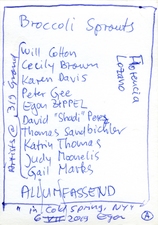 Broccoli Sprouts
Will Cotton
Cecily Brown
Karen Davis
Peter Gee
Egon ZIPPEL
David "Shadi" Perez
Thomas Sandbichler
Katrin Thomas
Judy Moonelis
Gail Martes
ALLUMFASSEND
Artists @ 319 Grand
Florencia
Lozano
A
in Cold Spring, NY
6 VII 2019 Egon
A